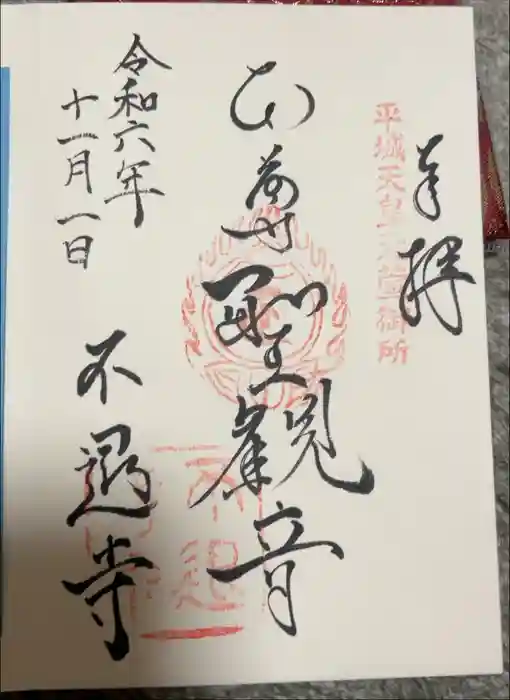 奉拝
平城天皇 萱御所
本尊聖觀音
令和六年
十一月一日
不退寺